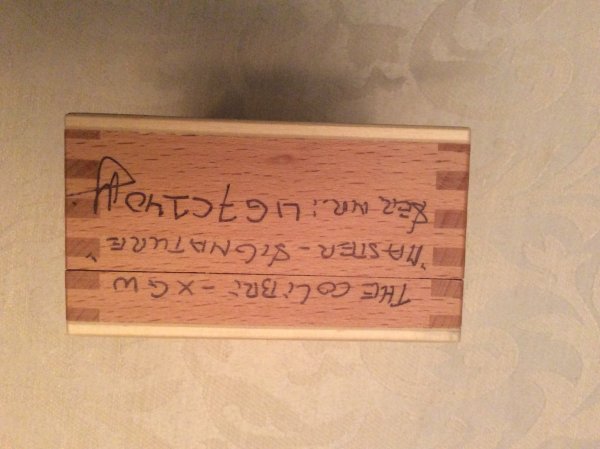 THE COLiBRi - XGW
"MASTER - SIGNATURE"
SER NR: